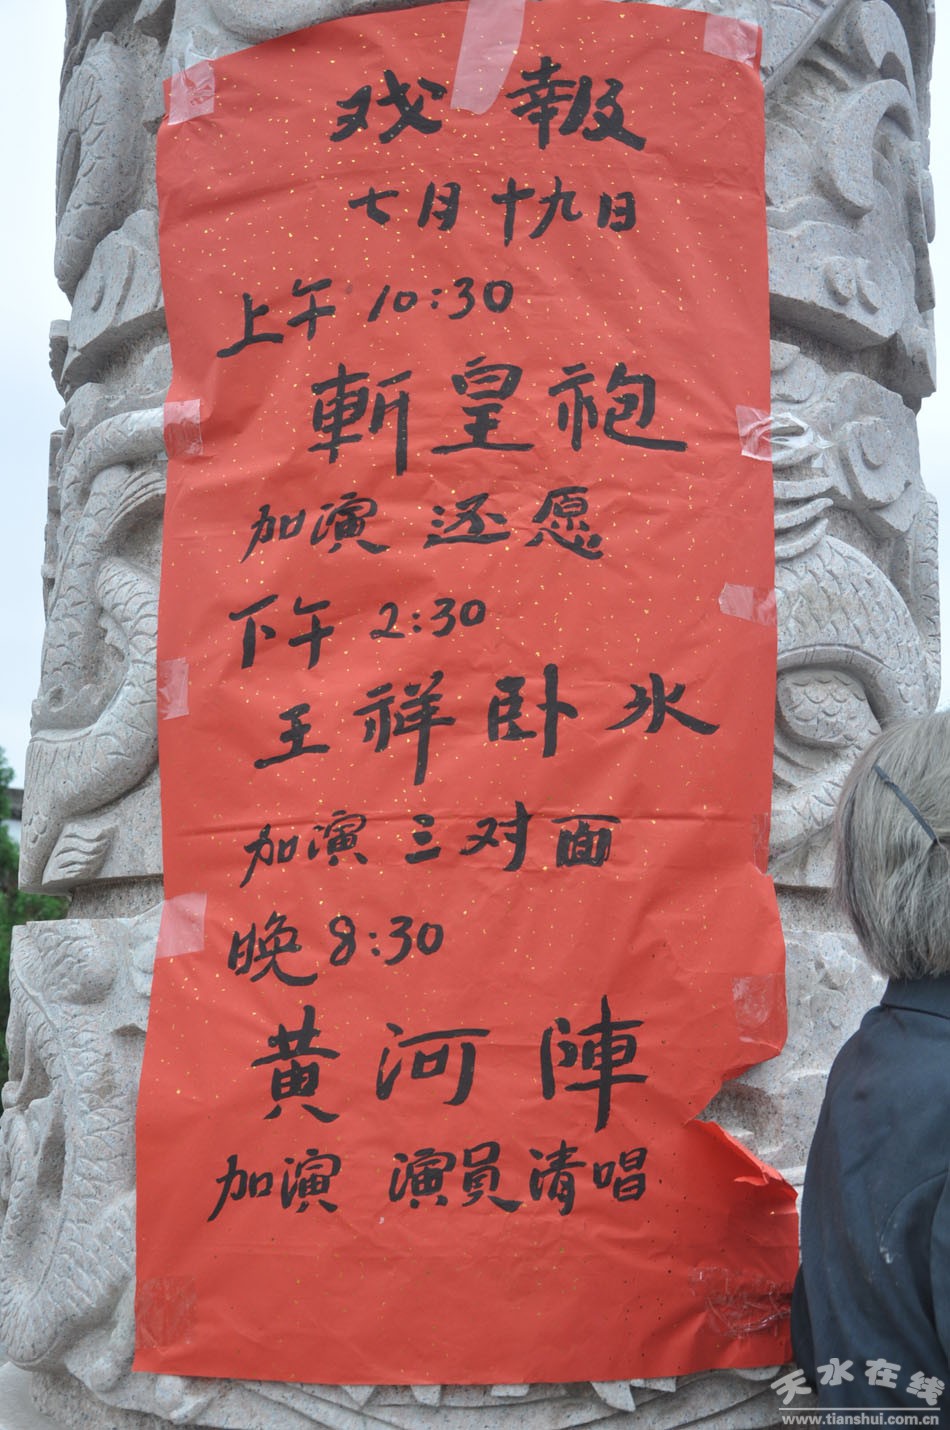 戏報
七月十九日
上午 10:30
斬皇袍
加演 还愿
下午 2:30
王祥卧氷
加演 三对面
晚 8:30
黄河陣
加演 演员清唱
天水在线
www.tianshui.com.cn